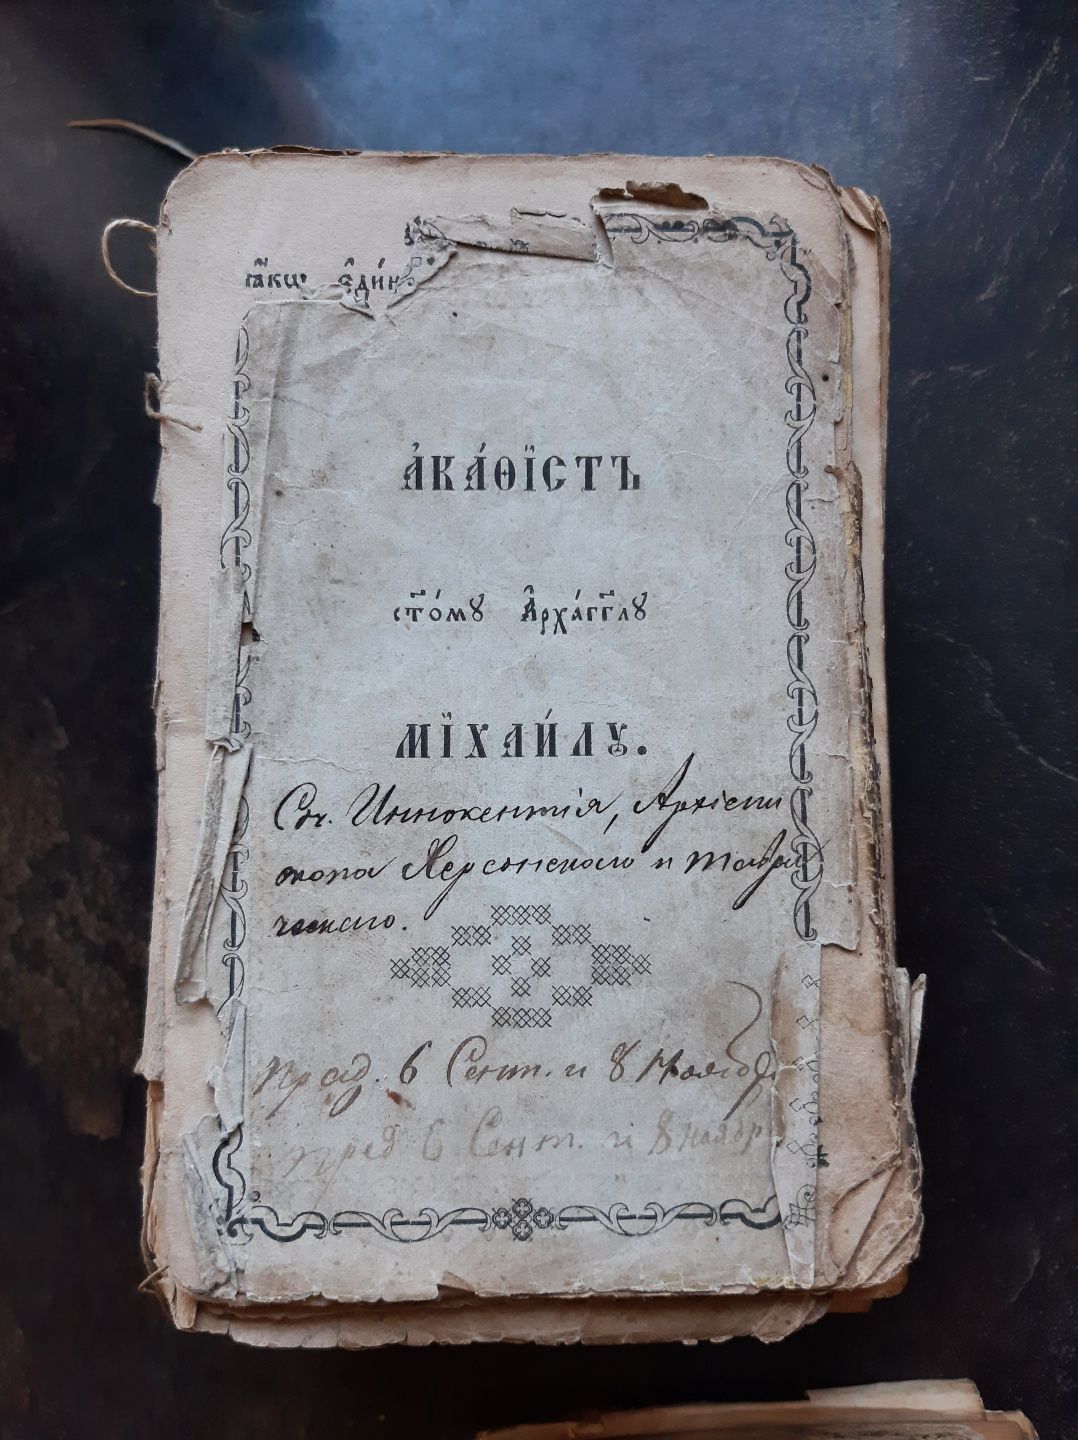 ꙗ҆́кѡ є҆ди́н
А҆КА́ѲЇСТЪ
ст҃о́мꙋ А҆рха́гг҃лꙋ
МЇХАИ́ЛꙊ.
Соч. Иннокентія, Архіепи
скопа Херсонскаго и Таври
ческаго.
празд. 6 Сент. и 8 Ноября
пред 6 Сент. и 8 ноябр